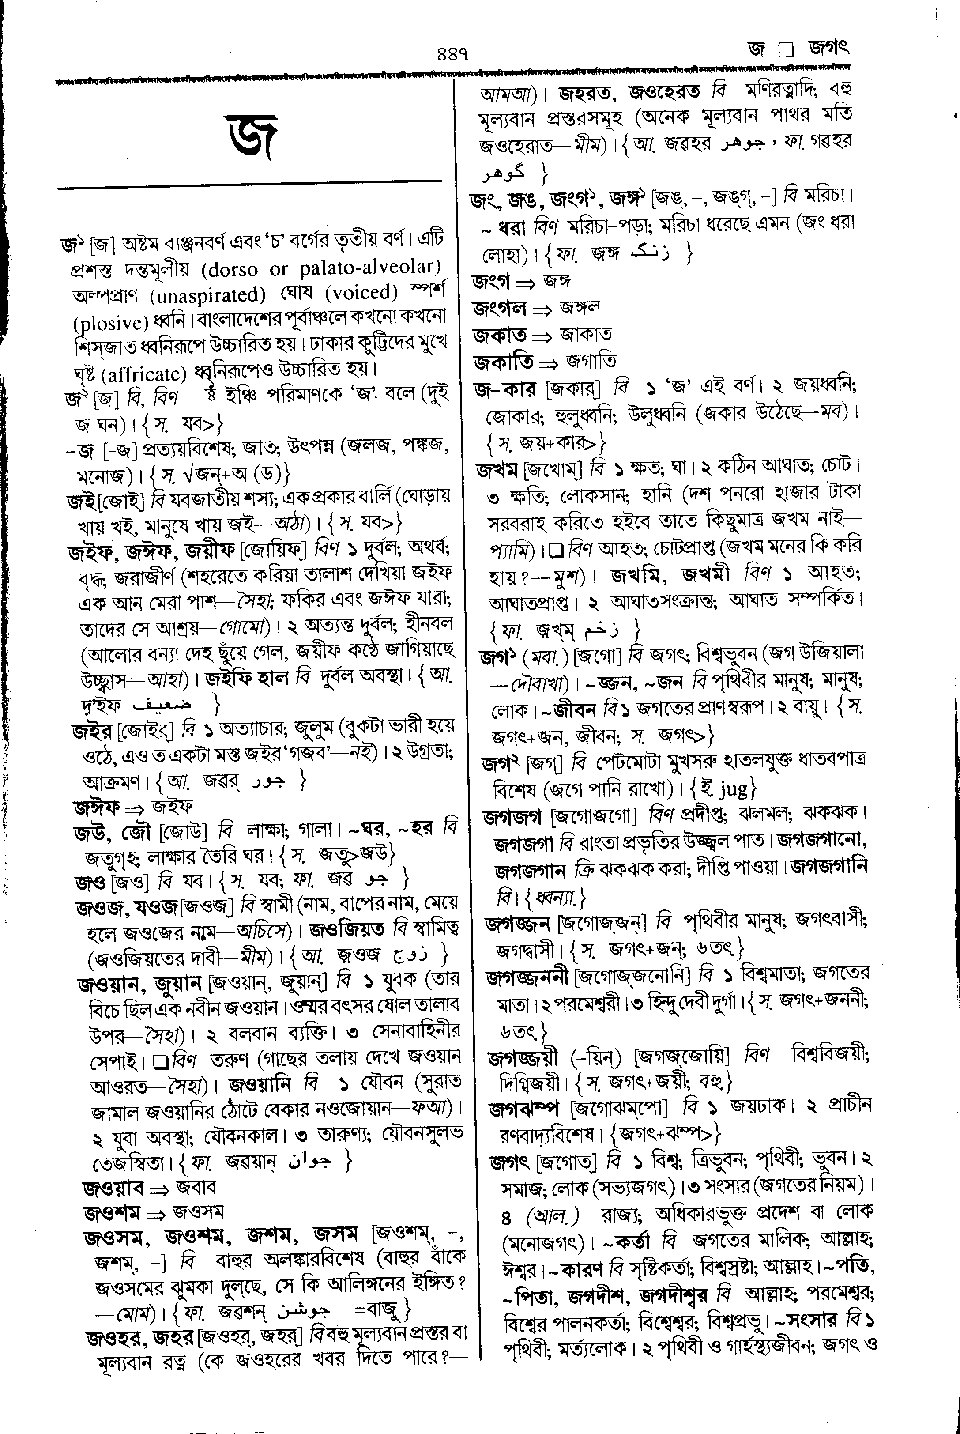 ৪৪৭
জ □ জগৎ
জ
জ১ [জ] অষ্টম ব্যঞ্জনবর্ণ এবং ‘চ’ বর্গের তৃতীয় বর্ণ। এটি
প্রশস্ত দন্তমূলীয় (dorso or palato-alveolar)
অল্পপ্রাণ (unaspirated) ঘোষ (voiced) স্পর্শ
(plosive) ধ্বনি। বাংলাদেশের পূর্বাঞ্চলে কখনো কখনো
শিসজাত ধ্বনিরূপে উচ্চারিত হয়। ঢাকার কুট্টিদের মুখে
ঘৃষ্ট (affricate) ধ্বনিরূপেও উচ্চারিত হয়।
জ২ [জ] বি, বিণ ইঞ্চি পরিমাণকে ‘জ’ বলে (দুই
জ ঘন)। {স. যব>}
-জ [-জ] প্রত্যয়বিশেষ; জাত; উৎপন্ন (জলজ, পঙ্কজ,
মনোজ)। {স. √জন্+অ (ড)}
জই [জোই] বি যবজাতীয় শস্য; একপ্রকার বার্লি (ঘোড়ায়
খায় খই, মানুষে খায় জই- অঠা)। {স. যব>}
জইফ, জঈফ, জয়ীফ [জোয়িফ্] বিণ ১ দুর্বল; অথর্ব;
বৃদ্ধ; জরাজীর্ণ (শহরেতে করিয়া তালাশ দেখিয়া জইফ
এক আন মেরা পাশ—সৈহা; ফকির এবং জঈফ যারা;
তাদের সে আশ্রয়—গোমো)। ২ অত্যন্ত দুর্বল; হীনবল
(আলোর বন্যা দেহ ছুঁয়ে গেল, জয়ীফ কণ্ঠে জাগিয়াছে
উচ্ছ্বাস—আহা)। জইফি হাল বি দুর্বল অবস্থা। {আ.
দ'ইফ ضعيف }
জইর [জোইর্] বি ১ অত্যাচার; জুলুম (বুকটা ভারী হয়ে
ওঠে, এও ত একটা মস্ত জইর ‘গজব’—নই)। ২ উগ্রতা;
আক্রমণ। {আ. জৱর্ جور }
জঈফ ⇒ জইফ
জউ, জৌ [জোউ] বি লাক্ষা; গালা। ~ঘর, ~হর বি
জতুগৃহ; লাক্ষার তৈরি ঘর। {স. জতু>জউ}
জও [জও] বি যব। {স. যব; ফা. জৱ جو }
জওজ, যওজ [জওজ্] বি স্বামী (নাম, বাপের নাম, মেয়ে
হলে জওজের নাম—অচিসে)। জওজিয়ত বি স্বামিত্ব
(জওজিয়তের দাবী—মীম)। {আ. জ়ওজ زوج }
জওয়ান, জুয়ান [জওয়ান্, জুয়ান্] বি ১ যুবক (তার
বিচে ছিল এক নবীন জওয়ান। ওম্মর বৎসর ষোল তালাব
উপর—সৈহা)। ২ বলবান ব্যক্তি। ৩ সেনাবাহিনীর
সেপাই। □ বিণ তরুণ (গাছের তলায় দেখে জওয়ান
আওরত—সৈহা)। জওয়ানি বি ১ যৌবন (সুরাত
জামাল জওয়ানির ঠোটে বেকার নওজোয়ান—ফআ)।
২ যুবা অবস্থা; যৌবনকাল। ৩ তারুণ্য; যৌবনসুলভ
তেজস্বিতা। {ফা. জৱয়ান্ جوان }
জওয়াব ⇒ জবাব
জওশম ⇒ জওসম
জওসম, জওশম, জশম, জসম [জওশম্, -,
জশম্, -] বি বাহুর অলঙ্কারবিশেষ (বাহুর বাঁকে
জওসমের ঝুমকা দুলছে, সে কি আলিঙ্গনের ইঙ্গিত?
—মোম)। {ফা. জৱশন্ جوشن =বাজু}
জওহর, জহর [জওহর্, জহর্] বি বহু মূল্যবান প্রস্তর বা
মূল্যবান রত্ন (কে জওহরের খবর দিতে পারে?—
আমআ)। জহরত, জওহেরত বি মণিরত্নাদি; বহু
মূল্যবান প্রস্তরসমূহ (অনেক মূল্যবান পাথর মতি
জওহেরাত—মীম)। {আ. জৱহর جوهر, ফা. গৱহর
گوهر }
জং, জঙ, জংগ১, জঙ্গ১ [জঙ্, -, জঙ্গ্, -] বি মরিচা।
~ ধরা বিণ মরিচা-পড়া; মরিচা ধরেছে এমন (জং ধরা
লোহা)। {ফা. জ়ঙ্গ زنگ }
জংগ ⇒ জঙ্গ
জংগল ⇒ জঙ্গল
জকাত ⇒ জাকাত
জকাতি ⇒ জগাতি
জ-কার [জকার্] বি ১ ‘জ’ এই বর্ণ। ২ জয়ধ্বনি;
জোকার; হুলুধ্বনি; উলুধ্বনি (জকার উঠেছে—মব)।
{স. জয়+কার>}
জখম [জখোম্] বি ১ ক্ষত; ঘা। ২ কঠিন আঘাত; চোট।
৩ ক্ষতি; লোকসান; হানি (দশ পনরো হাজার টাকা
সরবরাহ করিতে হইবে তাতে কিছুমাত্র জখম নাই—
প্যামি)। □ বিণ আহত; চোটপ্রাপ্ত (জখম মনের কি করি
হায়?—মুশ)। জখমি, জখমী বিণ ১ আহত;
আঘাতপ্রাপ্ত। ২ আঘাতসংক্রান্ত; আঘাত সম্পর্কিত।
{ফা. জ়খম্ زخم }
জগ১ (মবা.) [জগো] বি জগৎ; বিশ্বভুবন (জগ উজিয়ালা
—দৌবাখা)। ~জ্জন, ~জন বি পৃথিবীর মানুষ; মানুষ;
লোক। ~জীবন বি ১ জগতের প্রাণস্বরূপ। ২ বায়ু। {স.
জগৎ+জন, জীবন; স. জগৎ>}
জগ২ [জগ্] বি পেটমোটা মুখসরু হাতলযুক্ত ধাতবপাত্র
বিশেষ (জগে পানি রাখো)। {ই jug}
জগজগ [জগোজগো] বিণ প্রদীপ্ত; ঝলমল; ঝকঝক।
জগজগা বি রাংতা প্রভৃতির উজ্জ্বল পাত। জগজগানো,
জগজগান ক্রি ঝকঝক করা; দীপ্তি পাওয়া। জগজগানি
বি। {ধ্বন্যা.}
জগজ্জন [জগোজ্জন্] বি পৃথিবীর মানুষ; জগৎবাসী;
জগদ্বাসী। {স. জগৎ+জন; ৬তৎ}
জগজ্জননী [জগোজ্জনোনি] বি ১ বিশ্বমাতা; জগতের
মাতা। ২ পরমেশ্বরী। ৩ হিন্দু দেবী দুর্গা। {স. জগৎ+জননী;
৬তৎ}
জগজ্জয়ী (-য়িন্) [জগোজ্জোয়ি] বিণ বিশ্ববিজয়ী;
দিগ্বিজয়ী। {স. জগৎ+জয়ী; বহু}
জগঝম্প [জগোঝম্পো] বি ১ জয়ঢাক। ২ প্রাচীন
রণবাদ্যবিশেষ। {জগৎ+ঝম্প>}
জগৎ [জগোত্] বি ১ বিশ্ব; ত্রিভুবন; পৃথিবী; ভুবন। ২
সমাজ; লোক (সভ্যজগৎ)। ৩ সংসার (জগতের নিয়ম)।
৪ (আল.) রাজ্য; অধিকারভুক্ত প্রদেশ বা লোক
(মনোজগৎ)। ~কর্তা বি জগতের মালিক; আল্লাহ;
ঈশ্বর। ~কারণ বি সৃষ্টিকর্তা; বিশ্বস্রষ্টা; আল্লাহ। ~পতি,
~পিতা, জগদীশ, জগদীশ্বর বি আল্লাহ; পরমেশ্বর;
বিশ্বের পালনকর্তা; বিশ্বেশ্বর; বিশ্বপ্রভু। ~সংসার বি ১
পৃথিবী; মর্ত্যলোক। ২ পৃথিবী ও গার্হস্থ্যজীবন; জগৎ ও